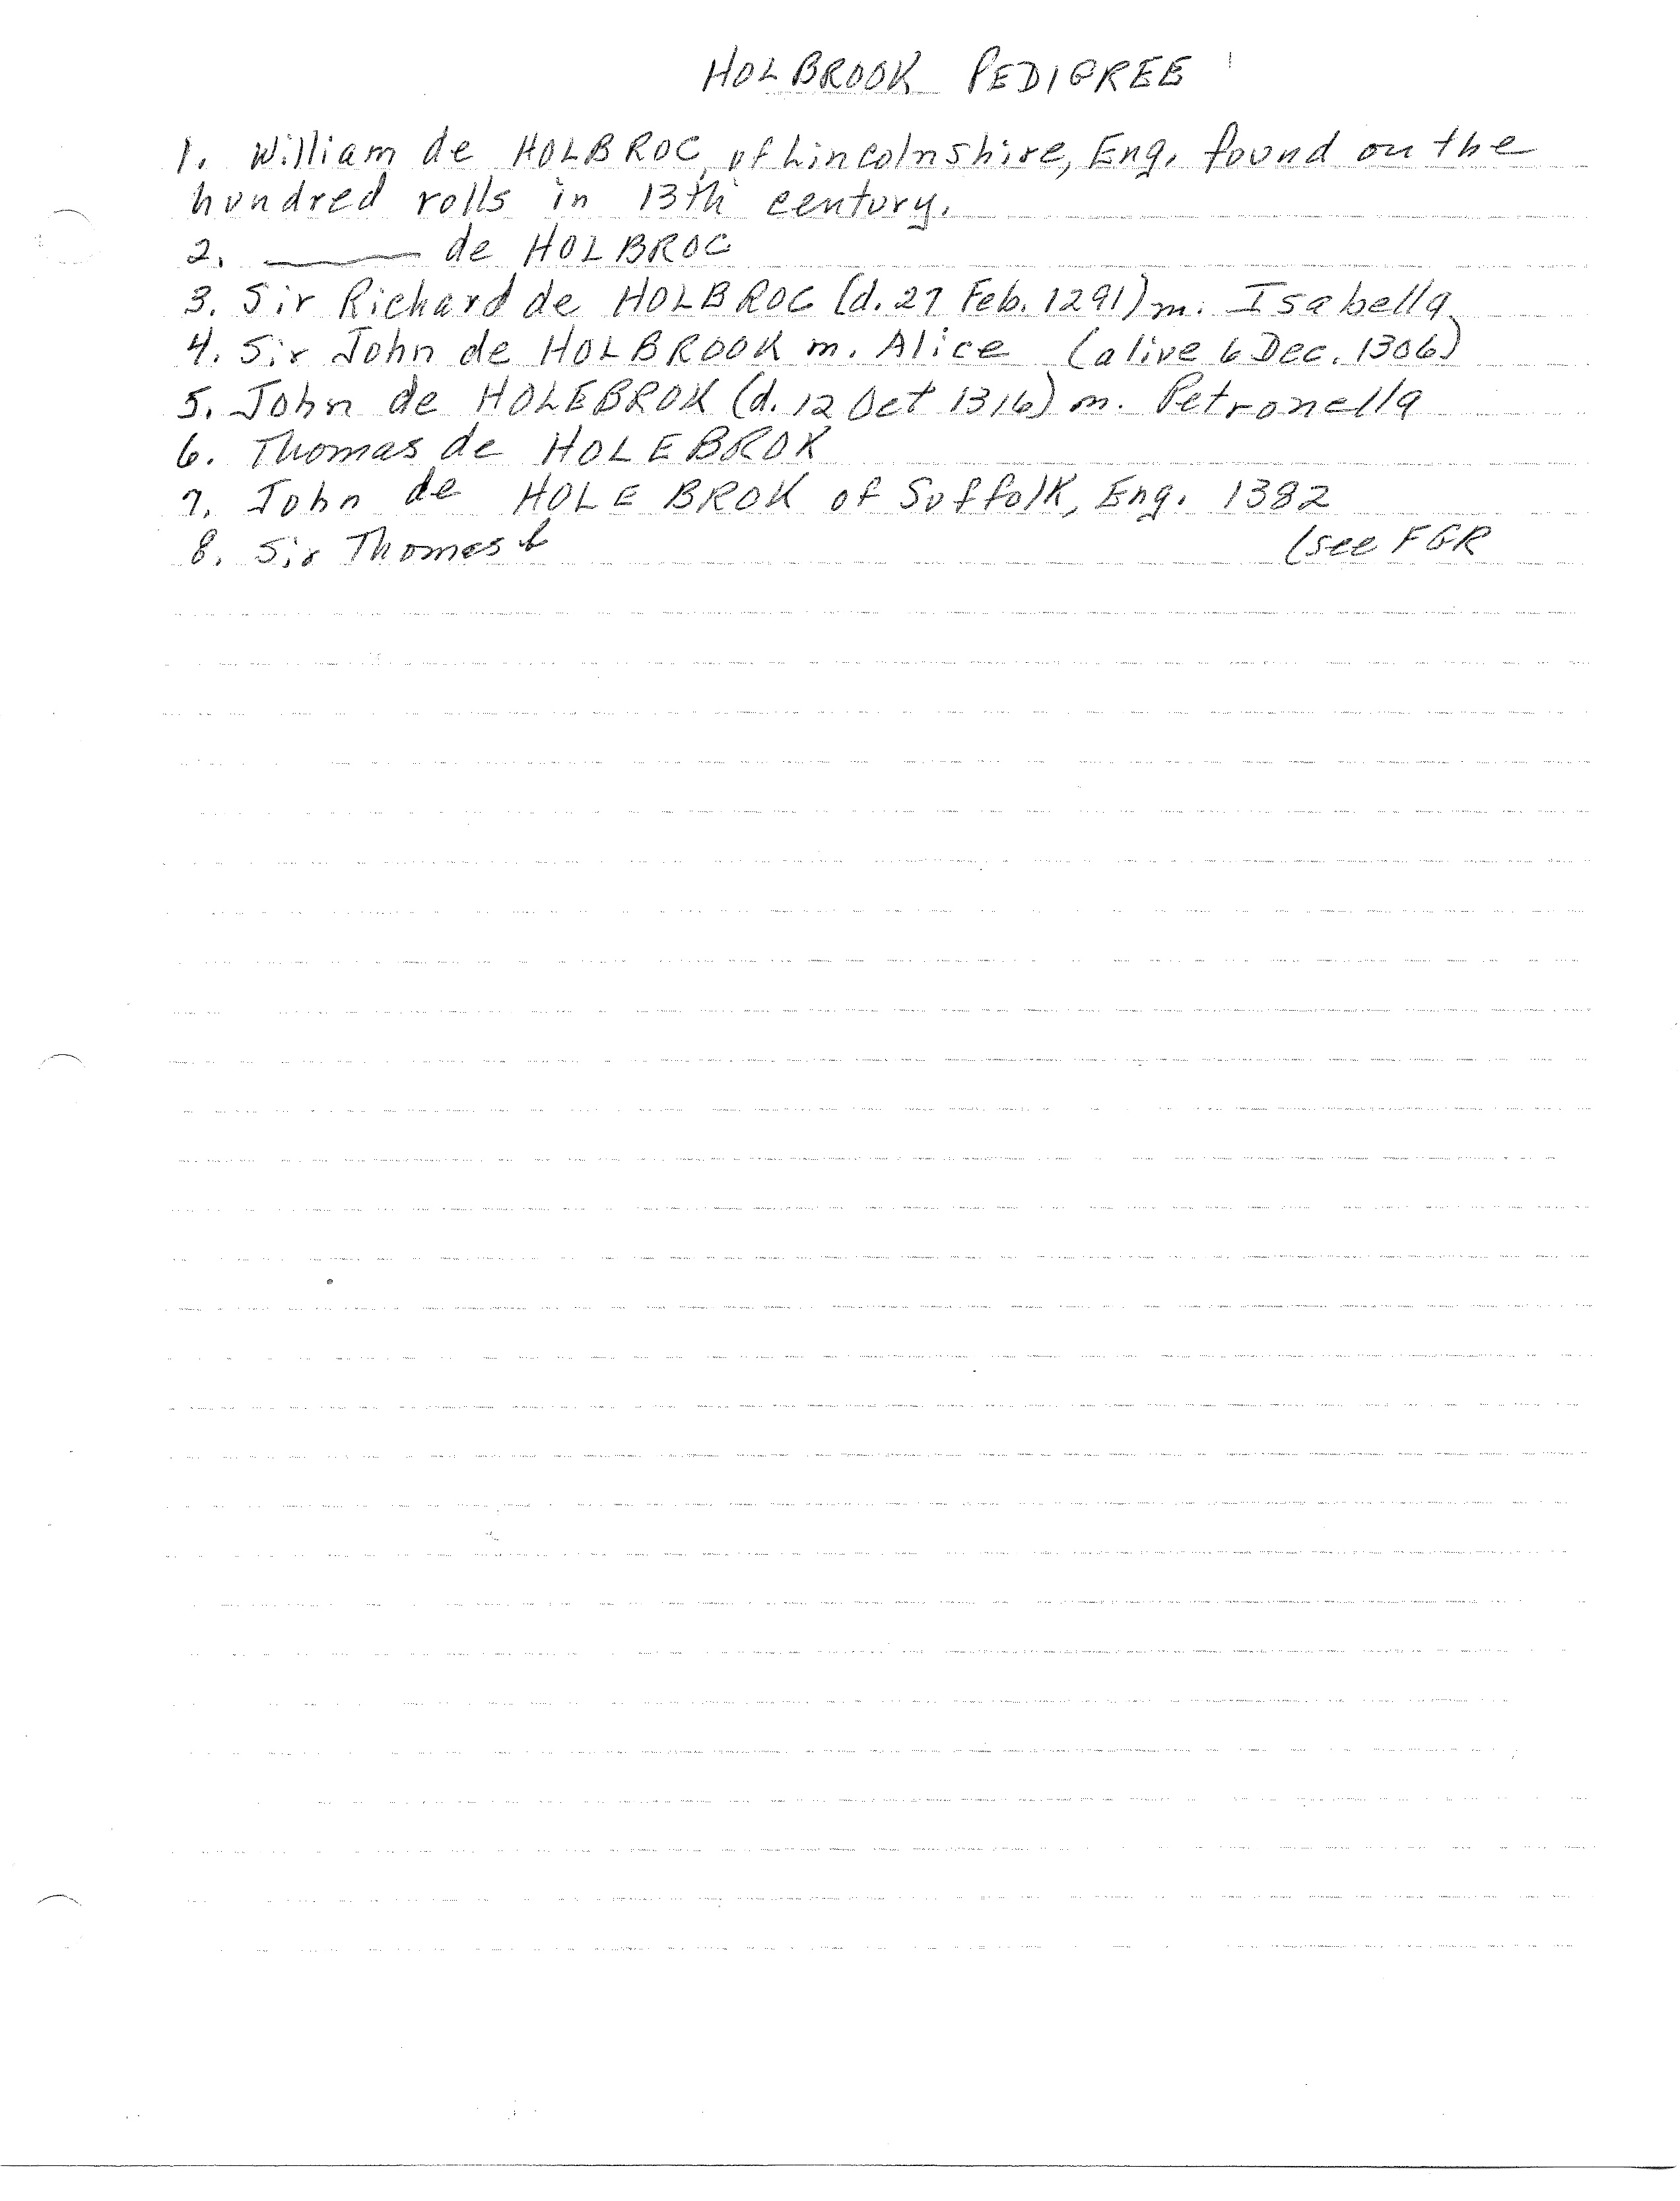 HOLBROOK PEDIGREE
1. William de HOLBROC, of Lincolnshire, Eng. found on the
hundred rolls in 13th century.
2. ——— de HOLBROC
3. Sir Richard de HOLBROC (d. 27 Feb. 1291) m. Isabella
4. Sir John de HOLBROOK m. Alice (alive 6 Dec. 1306)
5. John de HOLEBROK (d. 12 Oct 1316) m. Petronella
6. Thomas de HOLEBROK
7. John de HOLEBROK of Suffolk, Eng. 1382
8. Sir Thomas (see FGR